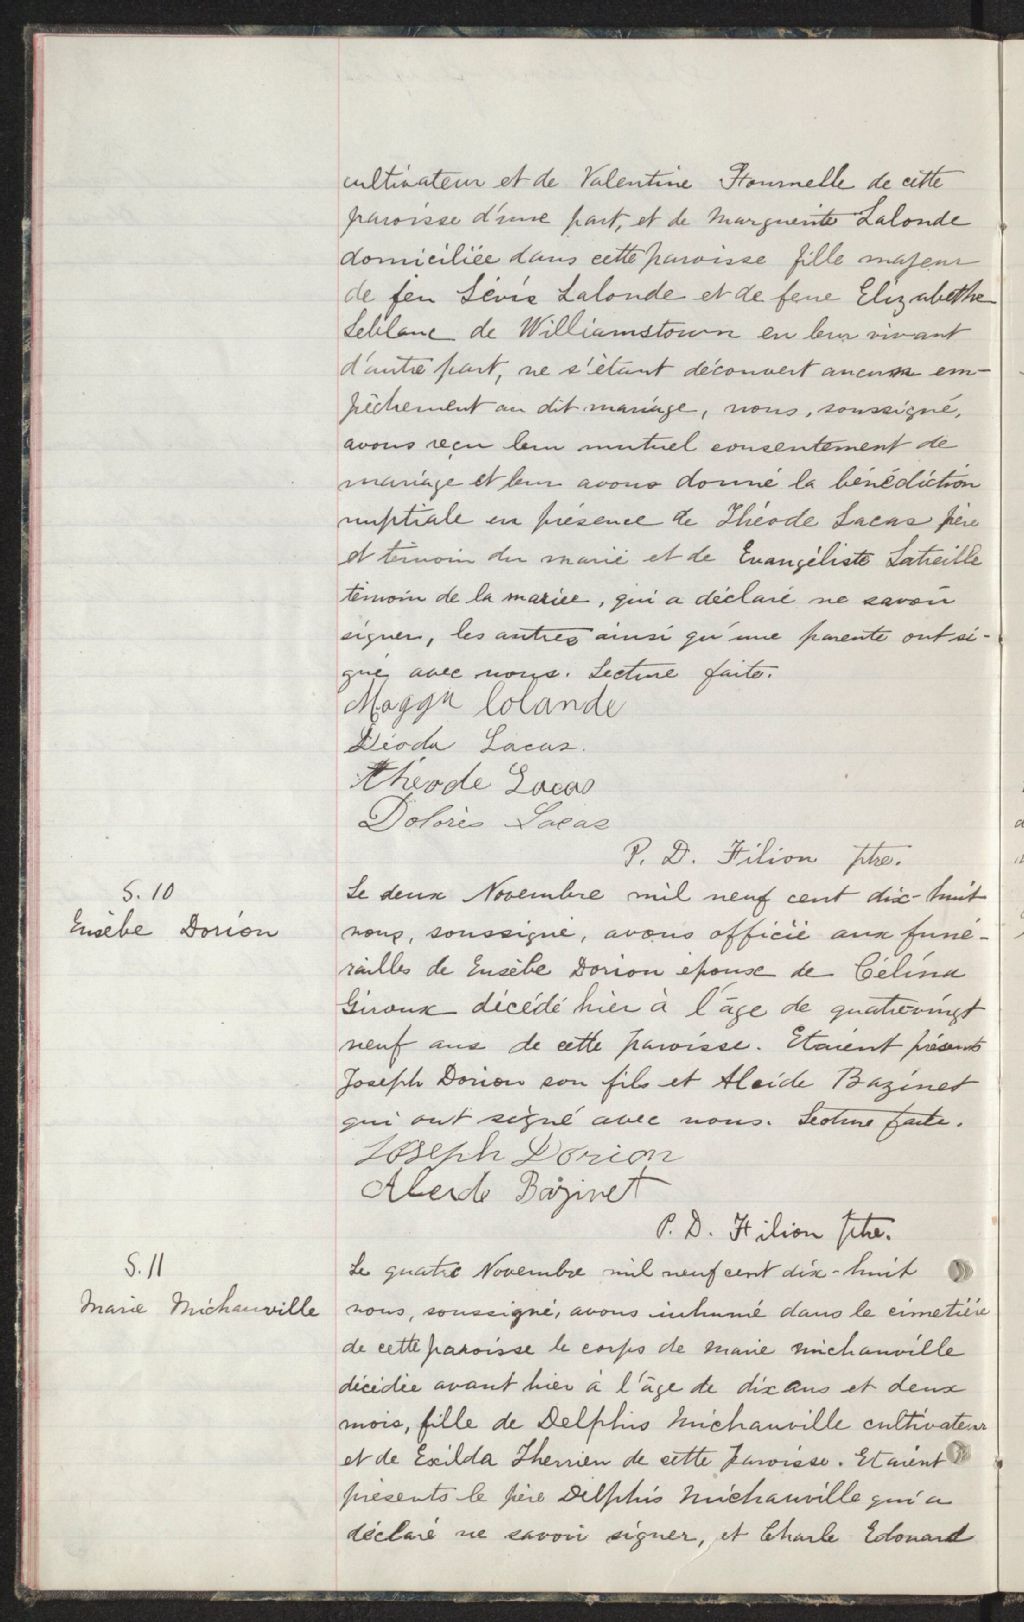 cultivateur et de Valentine Hournelle de cette
paroisse d'une part, et de Marguerite Lalonde
domiciliée dans cette paroisse fille majeur
de feu Lévis Lalonde et de feue Elizabethe
Leblanc de Williamstown en leur vivant
d'autre part, ne s'étant découvert aucun em-
pêchement au dit mariage, nous, soussigné,
avons reçu leur mutuel consentement de
mariage et leur avons donné la bénédiction
nuptiale en présence de Théode Lacas père
et témoin du marié et de Evangéliste Latreille
témoin de la mariée, qui a déclaré ne savoir
signer, les autres ainsi qu'une parente ont si-
gné avec nous. Lecture faite.
Maggy Lolande
Dioda Lacas.
Théode Lacas
Dolorès Lacas
P. D. Filion ptre.
S. 10
Eusèbe Dorion
Le deux Novembre mil neuf cent dix-huit
nous, soussigné, avons officié aux funé-
railles de Eusèbe Dorion époux de Célina
Giroux décédé hier à l'âge de quatrevingt
neuf ans de cette paroisse. Etaient présents
Joseph Dorion son fils et Alcide Bazinet
qui ont signé avec nous. Lecture faite.
Joseph Dorion
Alcide Bazinet
P. D. Filion ptre.
S. 11
Marie Michauville
Le quatre Novembre mil neuf cent dix-huit
nous, soussigné, avons inhumé dans le cimetière
de cette paroisse le corps de Marie Michauville
décédée avant hier à l'âge de dix ans et deux
mois, fille de Delphis Michauville cultivateur
et de Exilda Therrien de cette paroisse. Etaient
présents le père Delphis Michauville qui a
déclaré ne savoir signer, et Charle Edouard